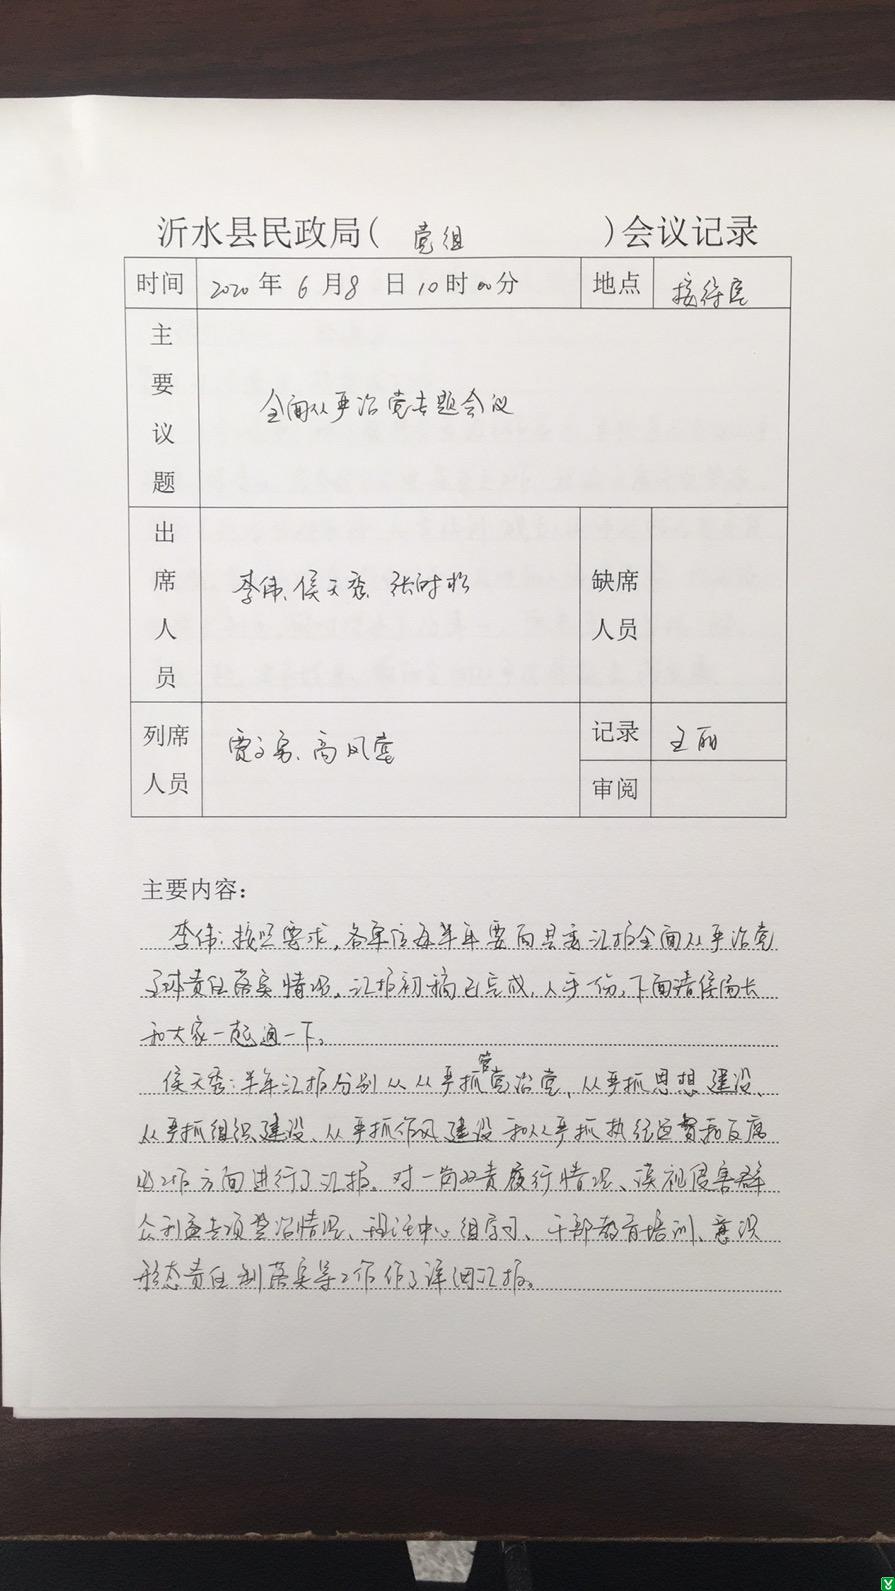 沂水县民政局(党组)会议记录
时间 2020年6月8日10时00分 地点 接待室
主要议题 全面从严治党专题会议
出席人员 李伟、侯天秀、张时松 缺席人员
列席人员 贾文勇、高凤堂 记录 王丽
审阅
主要内容：
李伟：按照要求，各单位每半年要向县委汇报全面从严治党
主体责任落实情况，汇报初稿已完成，人手一份，下面请侯局长
和大家一起通一下。
侯天秀：半年汇报分别从从严抓管党治党、从严抓思想建设、
从严抓组织建设、从严抓作风建设和从严抓执纪问责和反腐
工作方面进行了汇报。对一岗双责履行情况、漠视侵害群
众利益专项整治情况、理论中心组学习、干部教育培训、意识
形态责任制落实等工作作了详细汇报。